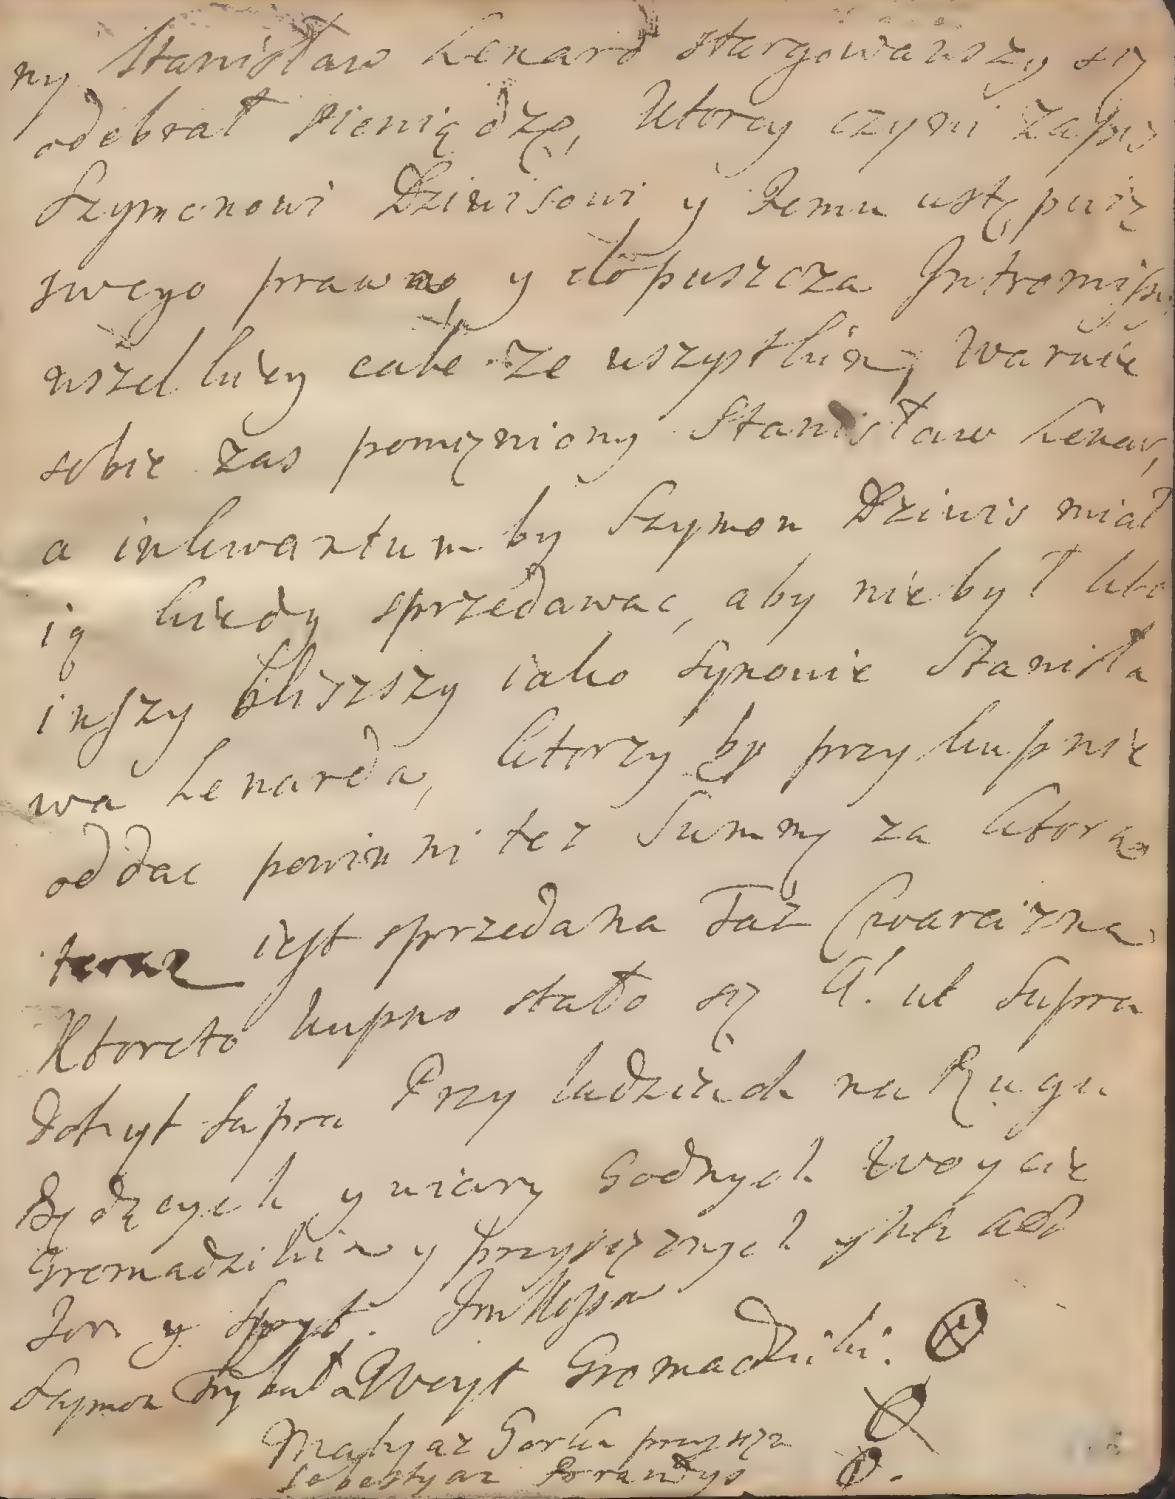 ny Stanisław Lenard stargowawszy się
odebrał pieniądze, ktory czyni zapis
Szymonowi Dziwisowi y Jemu ustępuię
swego prawa y dopuszcza Intromissy
wszelkiey cale ze wszystkim, waruie
sobie zas pomięniony Stanisław Lenar,
a inkwantum by Szymon Dziwis miał
ią kiedy sprzedawac, aby nie był kto
inszy bliszszy iako synowie Stanisła
wa Lenarda, ktorzy by przy kupnie
oddac powinni tez Summy za ktorą
teraz iest sprzedana Taż Cwarcizna
Ktoreto kupno stało się A: ut Supra
Supra Przy ludziach na Rugu
Będących y wiary Godnych Woycie
Gromadzkim y przysięznych
Jor y
Szymon Trybuła Woyt Gromadzki.
Matyjaz Gorka przysięz
Sebestyaz